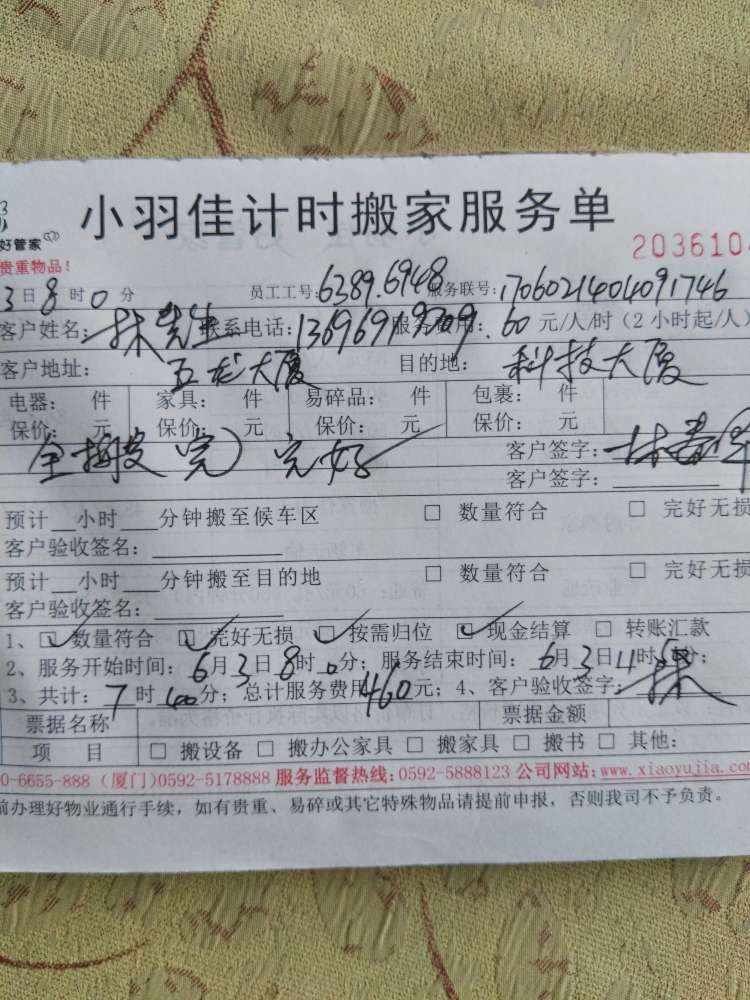 小羽佳计时搬家服务单
好管家
203610
贵重物品！
3日8时0分 员工工号:6389.6948 服务联号:1706021404091746
客户姓名:林先生 联系电话:13696919709 服务费用:60元/人/时（2小时起/人）
客户地址: 五龙大厦 目的地: 科技大厦
电器: 件 家具: 件 易碎品: 件 包裹: 件
保价: 元 保价: 元 保价: 元 保价: 元
完好 客户签字:林
客户签字:
预计__小时___分钟搬至候车区 □ 数量符合 □ 完好无损
客户验收签名:
预计__小时___分钟搬至目的地 □ 数量符合 □ 完好无损
客户验收签名:
1、☑数量符合 ☑完好无损 ☑按需归位 ☑现金结算 □ 转账汇款
2、服务开始时间: 6月3日8时0分; 服务结束时间: 6月3日11时5分;
3、共计: 7时 分; 总计服务费用460元; 4、客户验收签字:
票据名称 票据金额
项 目 □ 搬设备 □ 搬办公家具 □ 搬家具 □ 搬书 □ 其他:
0-6655-888（厦门）0592-5178888 服务监督热线:0592-5888123 公司网站:www.xiaoyujia.com
前办理好物业通行手续，如有贵重、易碎或其它特殊物品请提前申报，否则我司不予负责。